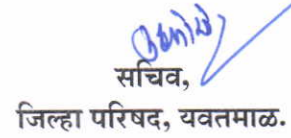 सचिव,
जिल्हा परिषद, यवतमाळ.